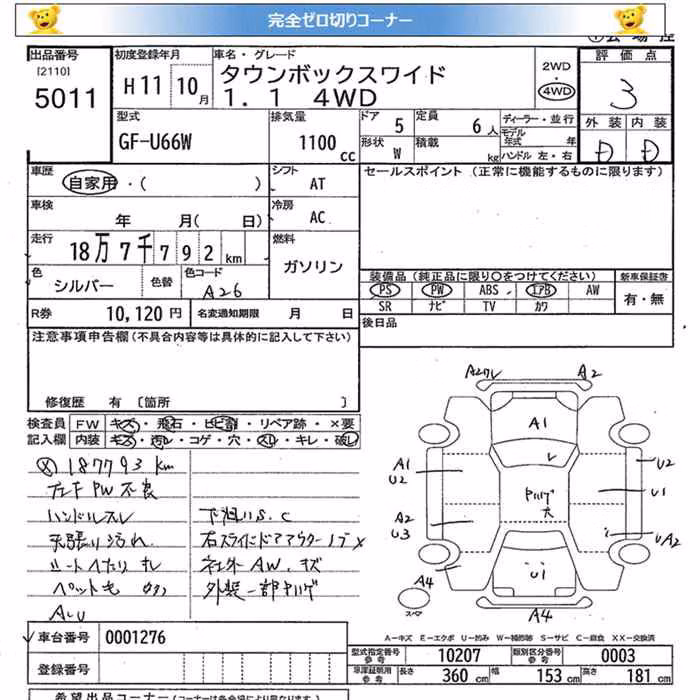 完全ゼロ切りコーナー
出品番号
[2110]
5011
初度登録年月
H11 10月
車名・グレード
タウンボックスワイド
1.1 4WD
2WD
4WD
評価点
3
外装 内装
D D
型式
GF-U66W
排気量
1100cc
ドア 5
定員 6人
形状 W
積載 kg
ディーラー・並行
モデル年式 年
ハンドル 左・右
車歴
自家用・( )
シフト AT
車検
年 月( 日)
冷房 AC
走行
18万7千792km
燃料
ガソリン
色 シルバー
色替
色コード A26
R券 10,120円
名変通知期限 月 日
セールスポイント (正常に機能するものに限ります)
装備品(純正品に限り○をつけてください)
PS PW ABS. エアB AW
SR ナビ TV カワ
新車保証書
有・無
後日品
注意事項申告欄(不具合内容等は具体的に記入して下さい)
修復歴 有 〔箇所 〕
検査員 FW キズ・飛石・ヒビ割・リペア跡・×要
記入欄 内装 キズ・汚レ・コゲ・穴・スレ・キレ・破レ
187793km
PW不良
ハンドルスレ
天張り汚れ
シートヘたり キレ
ペット毛
下廻りS.C
右スライドドアアウターノブ×
社外AW.キズ
外装一部
A2
A1
A1
U2
U2
U1
A2
U3
UA2
U1
A4
A4
スペア
A-キズ E-エクボ U-凹み W-補修跡 S-サビ C-腐食 XX-交換済
車台番号 0001276
登録番号
型式指定番号 参考 10207
類別区分番号 参考 0003
車庫証明用 参考 長さ 360cm 幅 153cm 高さ 181cm
希望出品コーナー